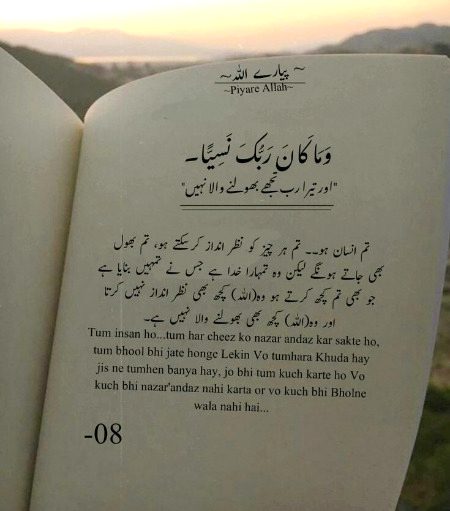 ~ پیارے اللہ ~
~Piyare Allah~
وَمَا كَانَ رَبُّكَ نَسِيًّا۔
"اور تیرا رب تجھے بھولنے والا نہیں"
تم انسان ہو۔۔ تم ہر چیز کو نظر انداز کر سکتے ہو، تم بھول
بھی جاتے ہونگے لیکن وہ تمہارا خدا ہے جس نے تمہیں بنایا ہے
جو بھی تم کچھ کرتے ہو وہ(اللہ) کچھ بھی نظر انداز نہیں کرتا
اور وہ(اللہ) کچھ بھی بھولنے والا نہیں ہے۔
Tum insan ho...tum har cheez ko nazar andaz kar sakte ho,
tum bhool bhi jate honge Lekin Vo tumhara Khuda hay
jis ne tumhen banya hay, jo bhi tum kuch karte ho Vo
kuch bhi nazar'andaz nahi karta or vo kuch bhi Bholne
wala nahi hai...
-08